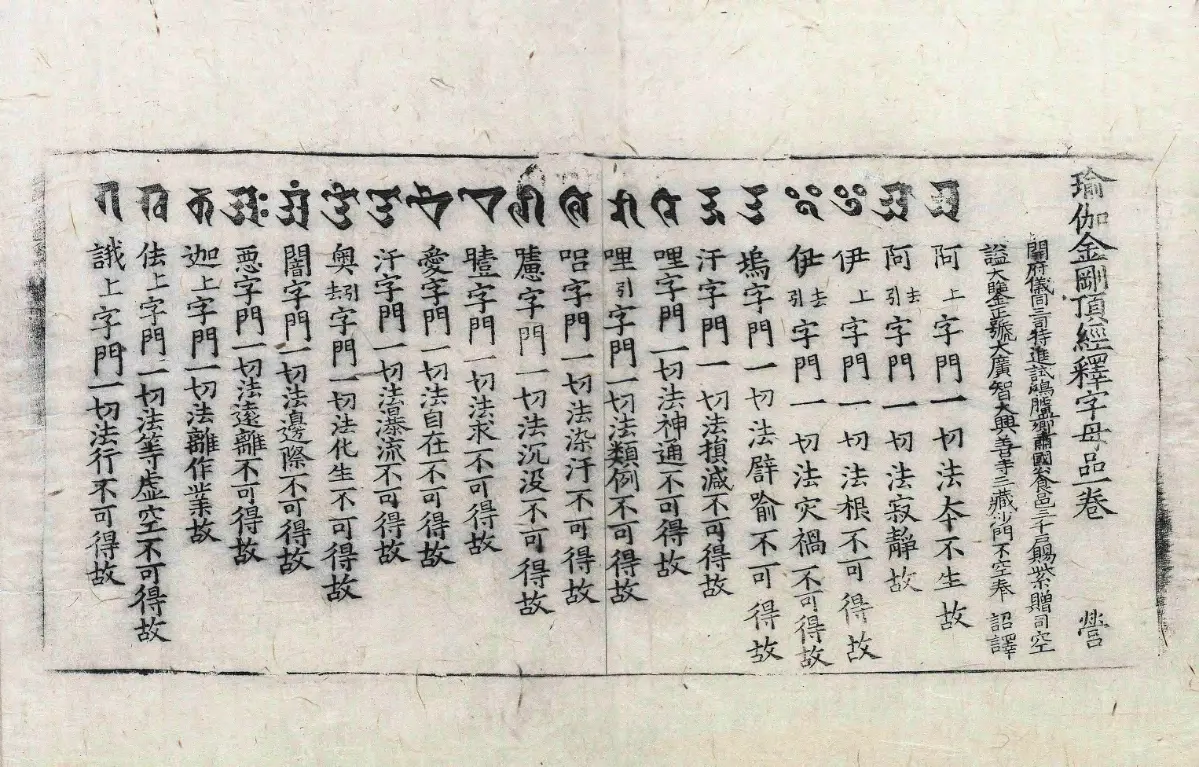 瑜伽金剛頂經釋字母品一卷 營
開府儀同三司特進試鴻臚卿肅國公食邑三千戶賜紫贈司空
謚大鑒正號大廣智大興善寺三藏沙門不空奉 詔譯
𑖀 阿上字門一切法夲不生故
𑖁 阿引去字門一切法寂靜故
𑖂 伊上字門一切法根不可得故
𑖃 伊引去字門一切法灾禍不可得故
𑖄 塢字門一切法譬喻不可得故
𑖅 汙字門一切法損减不可得故
𑖆 哩字門一切法神通不可得故
𑖇 哩引字門一切法類例不可得故
𑖈 呂字門一切法染汙不可得故
𑖉 臚字門一切法沉没不可得故
𑖊 曀字門一切法求不可得故
𑖋 愛字門一切法自在不可得故
𑖌 汙字門一切法瀑流不可得故
𑖍 奥引去字門一切法化生不可得故
𑖀𑖽 闇字門一切法邊際不可得故
𑖀𑖾 惡字門一切法遠離不可得故
𑖎 迦上字門一切法離作業故
𑖏 佉上字門一切法等虛空不可得故
𑖐 誐上字門一切法行不可得故